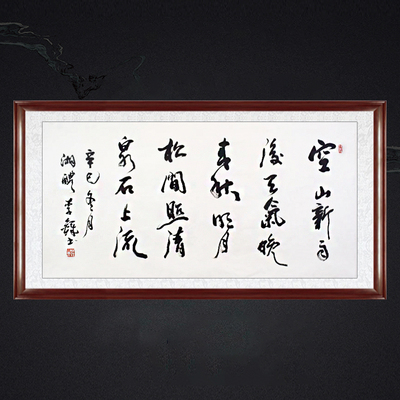 空山新雨
後天氣晚
来秋明月
松間照清
泉石上流
辛巳冬月
湘醴李鐸书